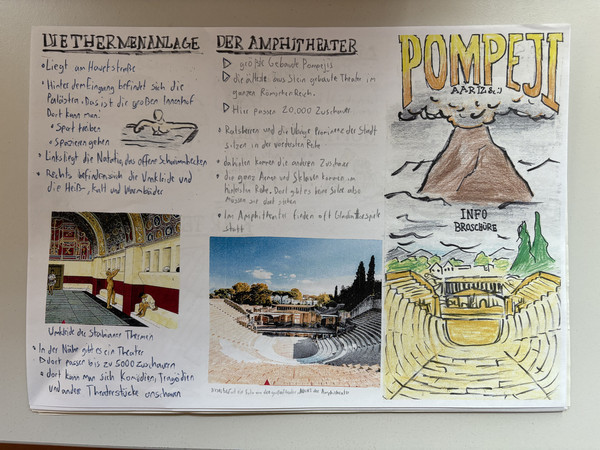 DIE THERMENANLAGE
Liegt am Hauptstraße
Hinter dem Eingang befindet sich die
Palästen. Das ist die großen Innenhof
Dort kann man:
Sport treiben
Spazieren gehen
Links liegt die Natatio, das offene Schwimmbecken
Rechts befinden sich die Umkleide und
die Heiß-, Kalt und Warmbäder
Umkleide der Stabianer Thermen
In der Nähe gibt es ein Theater
Dort passen bis zu 5000 Zuschauern
dort kann man sich Komödien, Tragödien
und andere Theaterstücke anschauen
DER AMPHITHEATER
größte Gebäude Pompejis
die älteste, aus Stein gebaute Theater im
ganzen Römischen Reich.
Hier passen 20,000 Zuschauer
Ratsherren und die übrige Prominenz der Stadt
sitzen in der vordersten Reihe
dahinter kommen die anderen Zuschauer
die ganz Arme und Sklaven kommen im
Reihe. Dort gibt es keine Sitze also
müssen sie dort
Im Amphitheater finden oft Gladiatorenspiele
statt
POMPEJI
AARIZ &:)
INFO
BROSCHÜRE